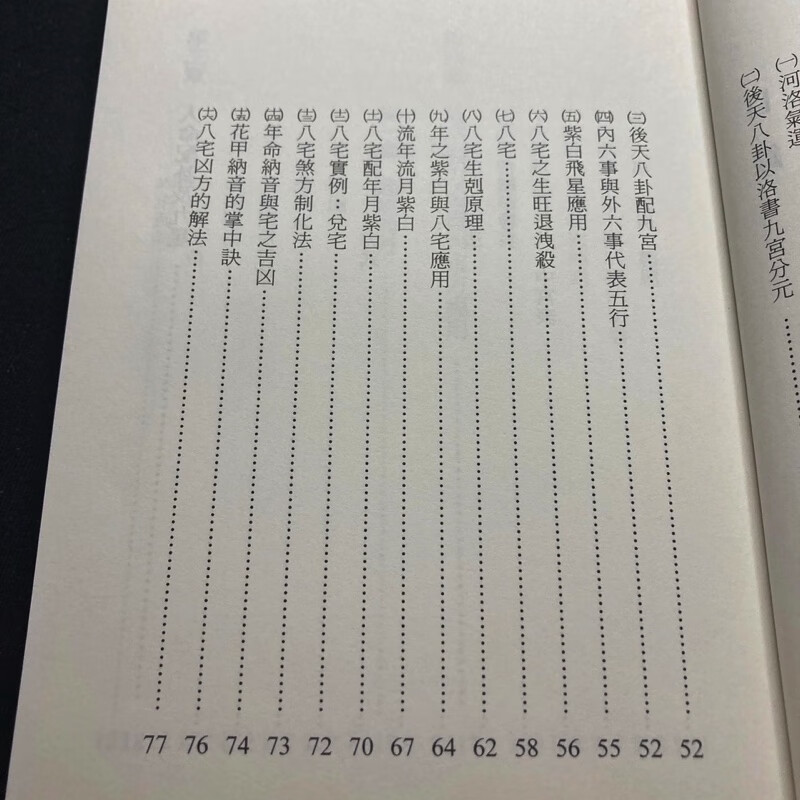 ㈠河洛氣運
㈡後天八卦以洛書九宮分元……
㈢後天八卦配九宮……52
㈣內六事與外六事代表五行……52
㈤紫白飛星應用……55
㈥八宅之生旺退洩殺……56
㈦八宅……58
㈧八宅生剋原理……62
㈨年之紫白與八宅應用……64
㈩流年流月紫白……67
(十一)八宅配年月紫白……70
(十二)八宅實例：兌宅……72
(十三)八宅煞方制化法……73
(十四)年命納音與宅之吉凶……74
(十五)花甲納音的掌中訣……76
(十六)八宅凶方的解法……77